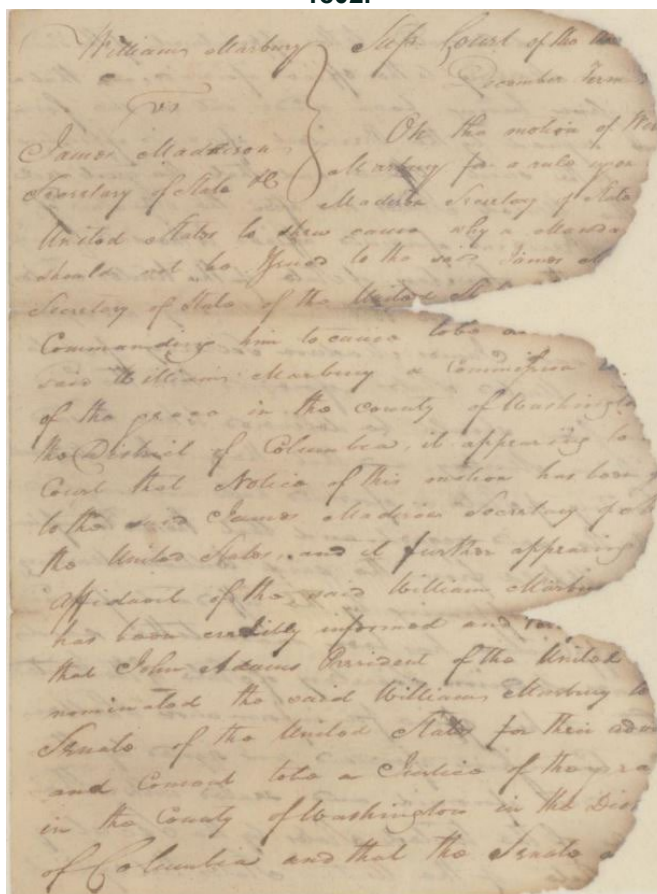 1802.
William Marbury } Sup. Court of the
December Term
vs
On the motion of
James Maddison
Marbury for a rule upon
Secretary of State &c
Madison Secretary of State
United States to shew cause why a
should not be Issued to the said James
Secretary of State of the United
Commanding him to cause to be
said William Marbury a Commission
of the peace in the county of Washington
the District of Columbia, it appearing to
Court that Notice of this motion has been
to the said James Madison Secretary of
the United States, and it further appearing
Affidavit of the said William
has been credibly informed and
that John Adams President of the United
nominated the said William Marbury to
Senate of the United States for their
and consent to be a Justice of the
in the County of Washington in the
of Columbia and that the Senate